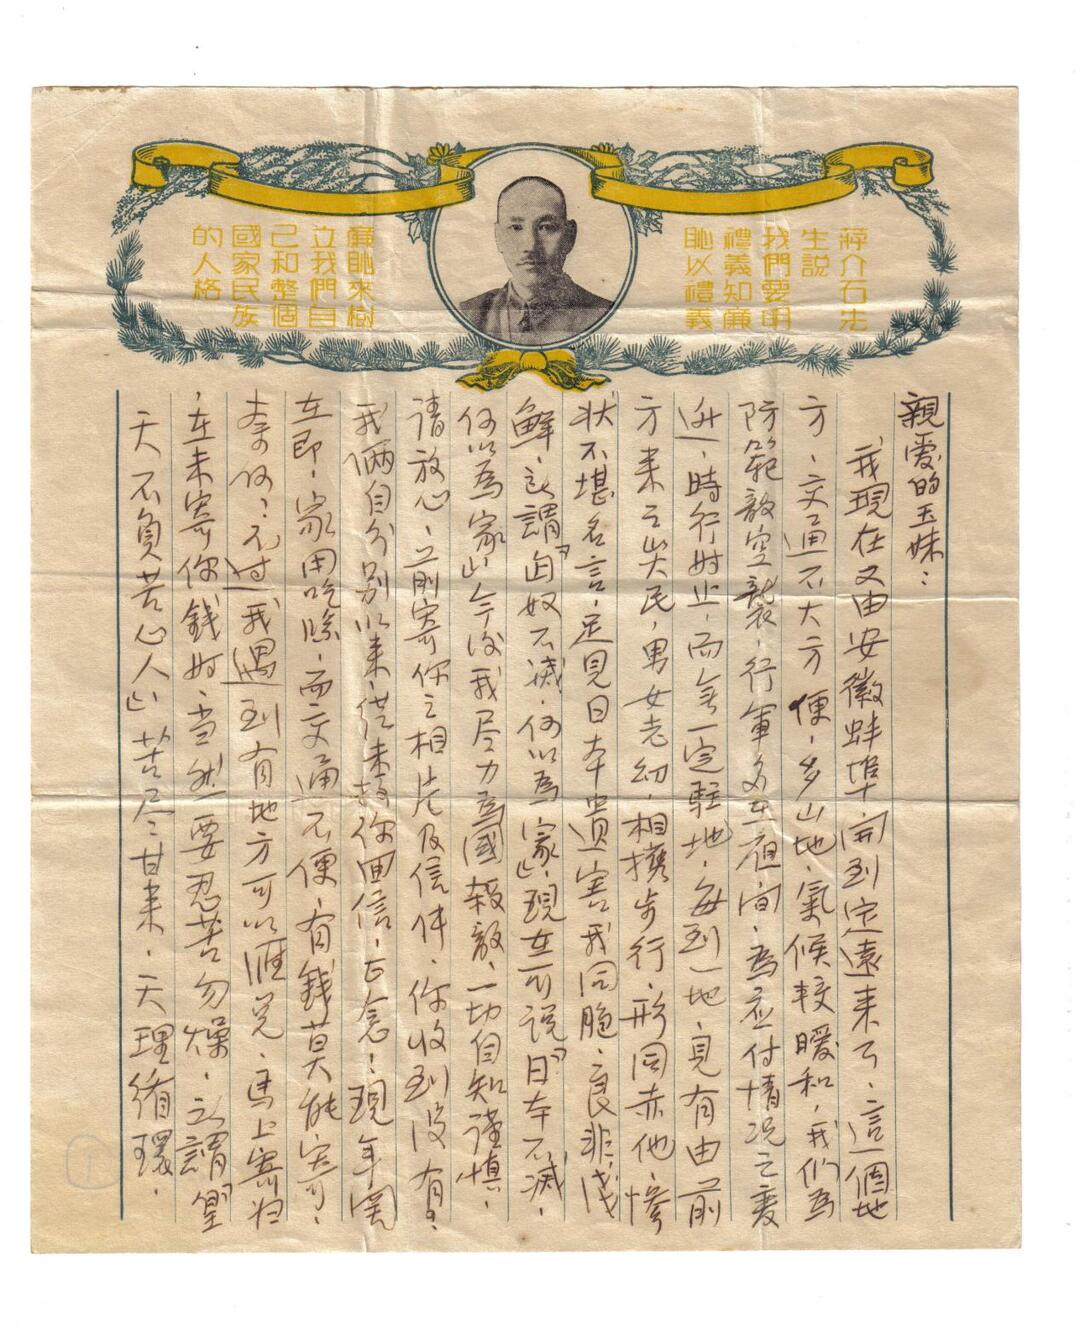 蔣介石先
生說
我們要明
禮義知廉
恥以禮義
廉恥來樹
立我們自
己和整個
國家民族
的人格
親愛的玉妹：
我現在又由安徽蚌埠開到定遠來了、這個地
方、交通不大方便、多山地、氣候較暖和、我們為
防範敵空襲、行軍多在夜間、為應付情況之變
遷、時行時止、而無一定駐地、每到一地、見有由前
方來之災民、男女老幼、相攜步行、形同赤他、慘
狀不堪名言、足見日本遺害我同胞、良非淺
鮮、語謂『匈奴不滅、何以為家』、現在可說『日本不滅、
何以為家』、今後我尽力為國殺敵、一切自知謹慎、
請放心、前寄你之相片及信件、你收到沒有？
我倆自分別以來、從未接你回信、甚念！現年關
在即、家用吃賬、而交通不便、有錢莫能寄、
奈何？不过我遇到有地方可以匯兌、馬上寄归
、在未寄你錢时、当然要忍苦勿燥、語謂『皇
天不負苦心人』、苦尽甘来、天理循環、
①